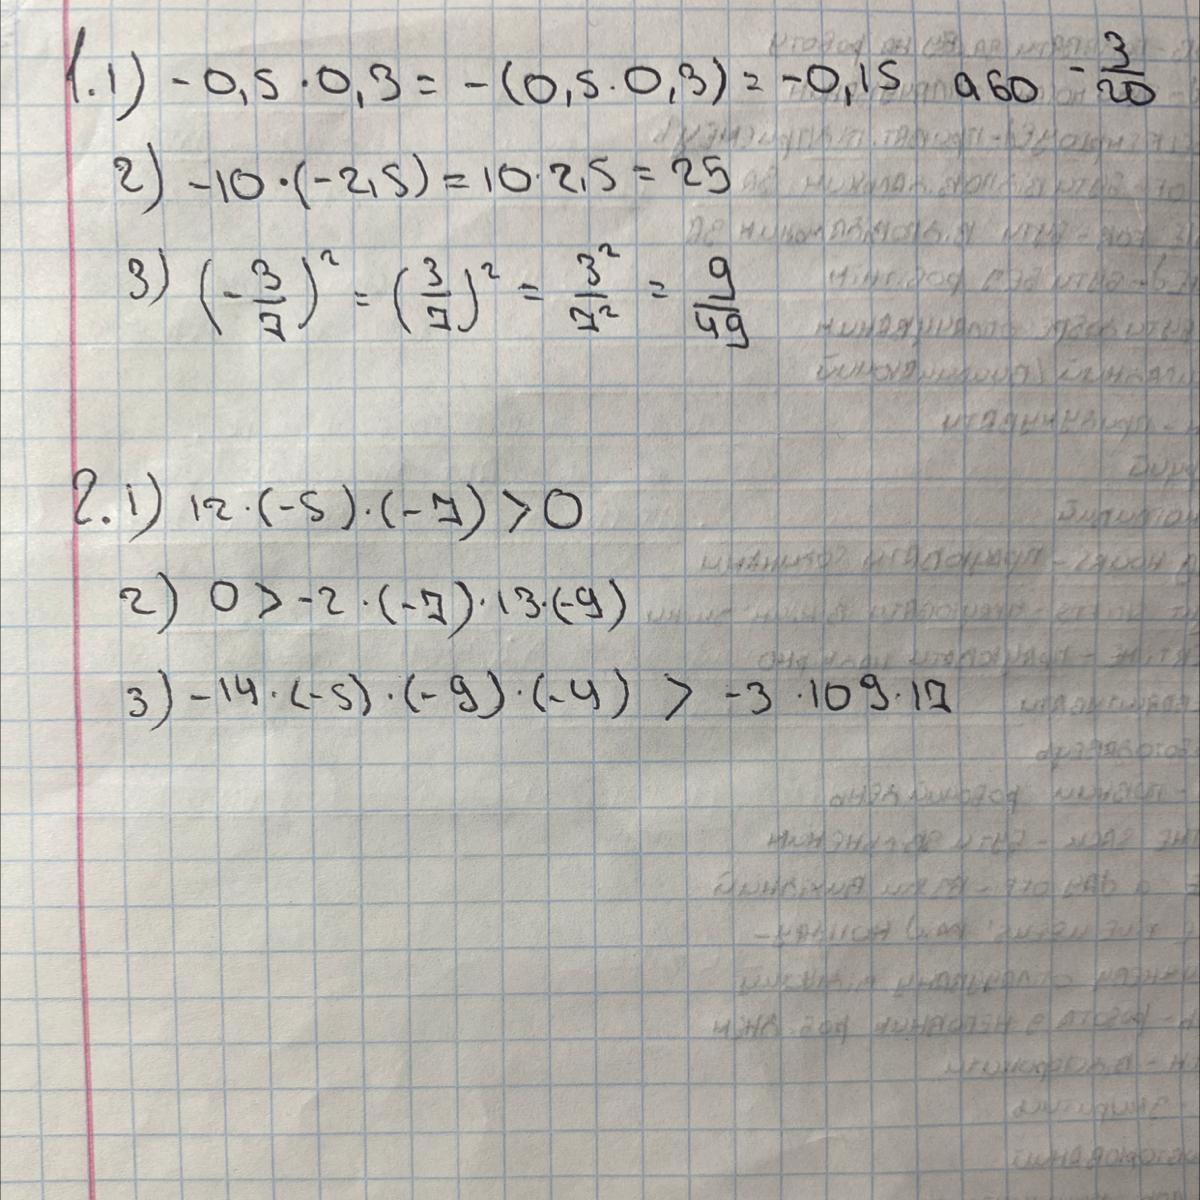 1. 1) -0,5 · 0,3 = -(0,5 · 0,3) = -0,15 або -3/20
2) -10 · (-2,5) = 10 · 2,5 = 25
3) (-3/7)² = (3/7)² = 3²/7² = 9/49
2. 1) 12 · (-5) · (-7) > 0
2) 0 > -2 · (-7) · 13 · (-9)
3) -14 · (-5) · (-9) · (-4) > -3 · 109 · 17